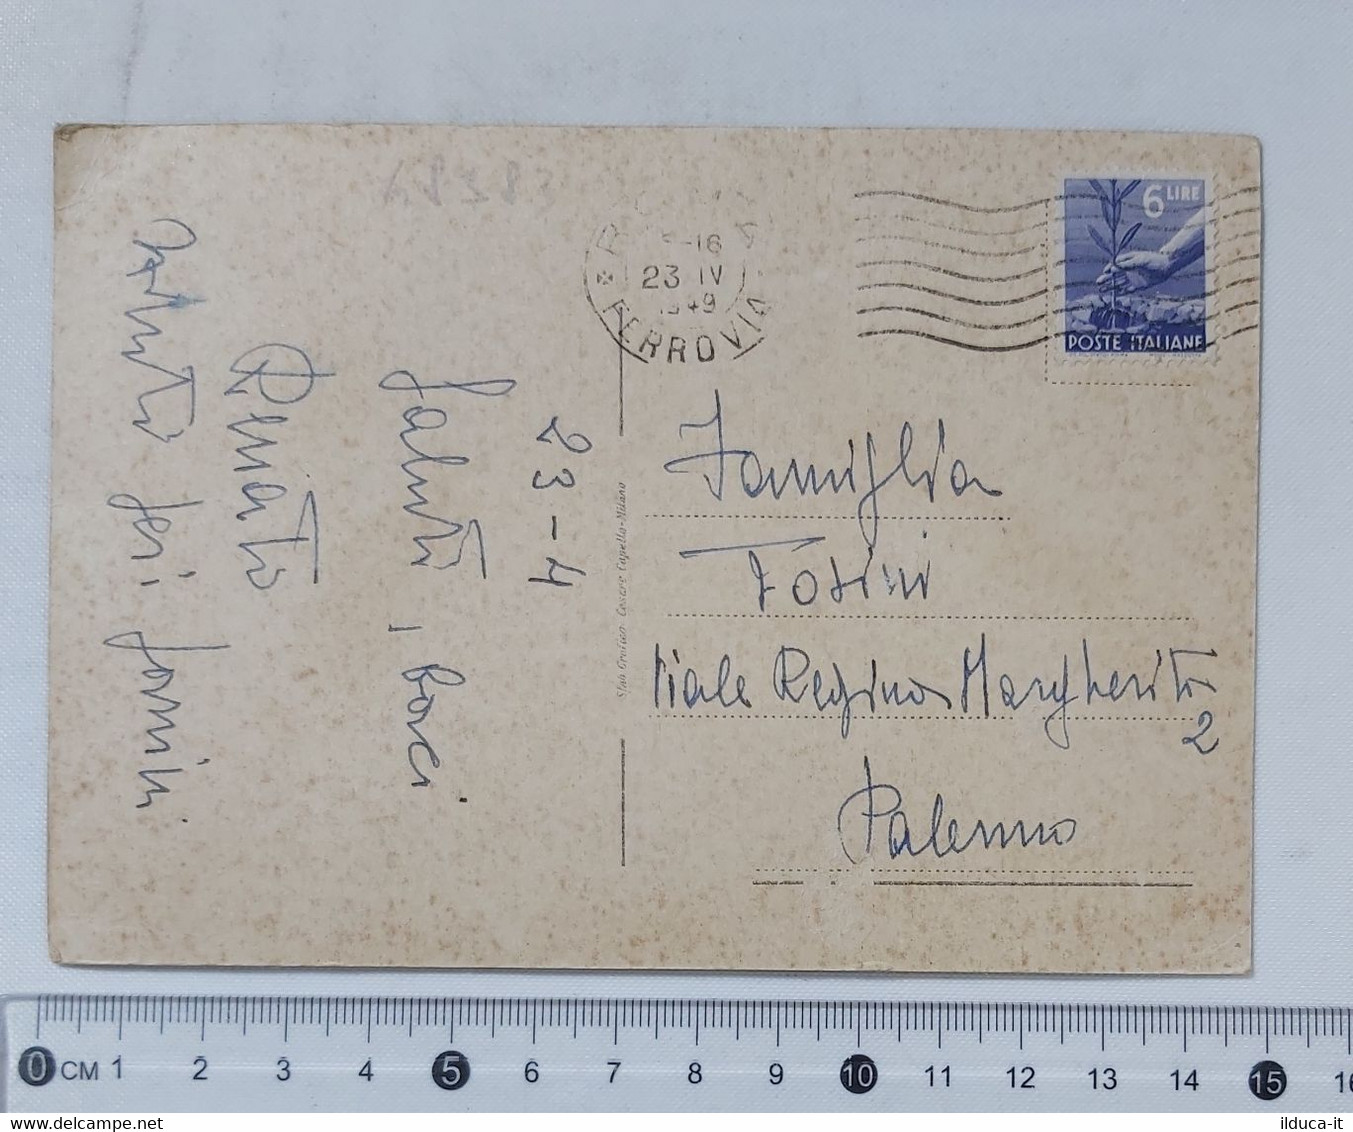 23-4
Saluti, baci
Renato
Stab. Grafico Cesare Capello-Milano
15-16
23 IV
1949
FERROVIA
6 LIRE
POSTE ITALIANE
Famiglia
Viale Regina Margherita
2
Palermo
0 CM 1 2 3 4 5 6 7 8 9 10 11 12 13 14 15 16
www.delcampe.net
ilduca-it